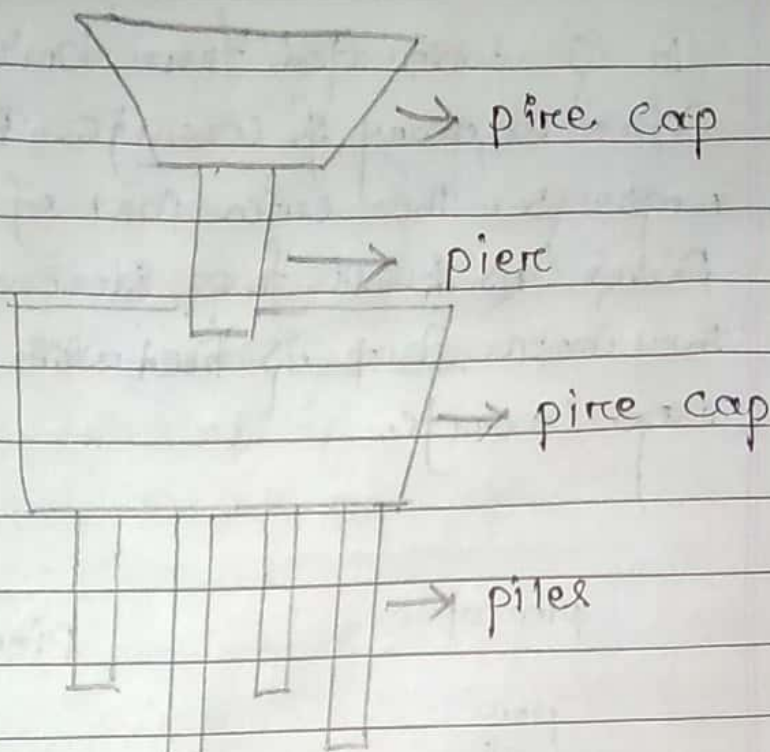 pirce cap
pierc
pirce cap
piles